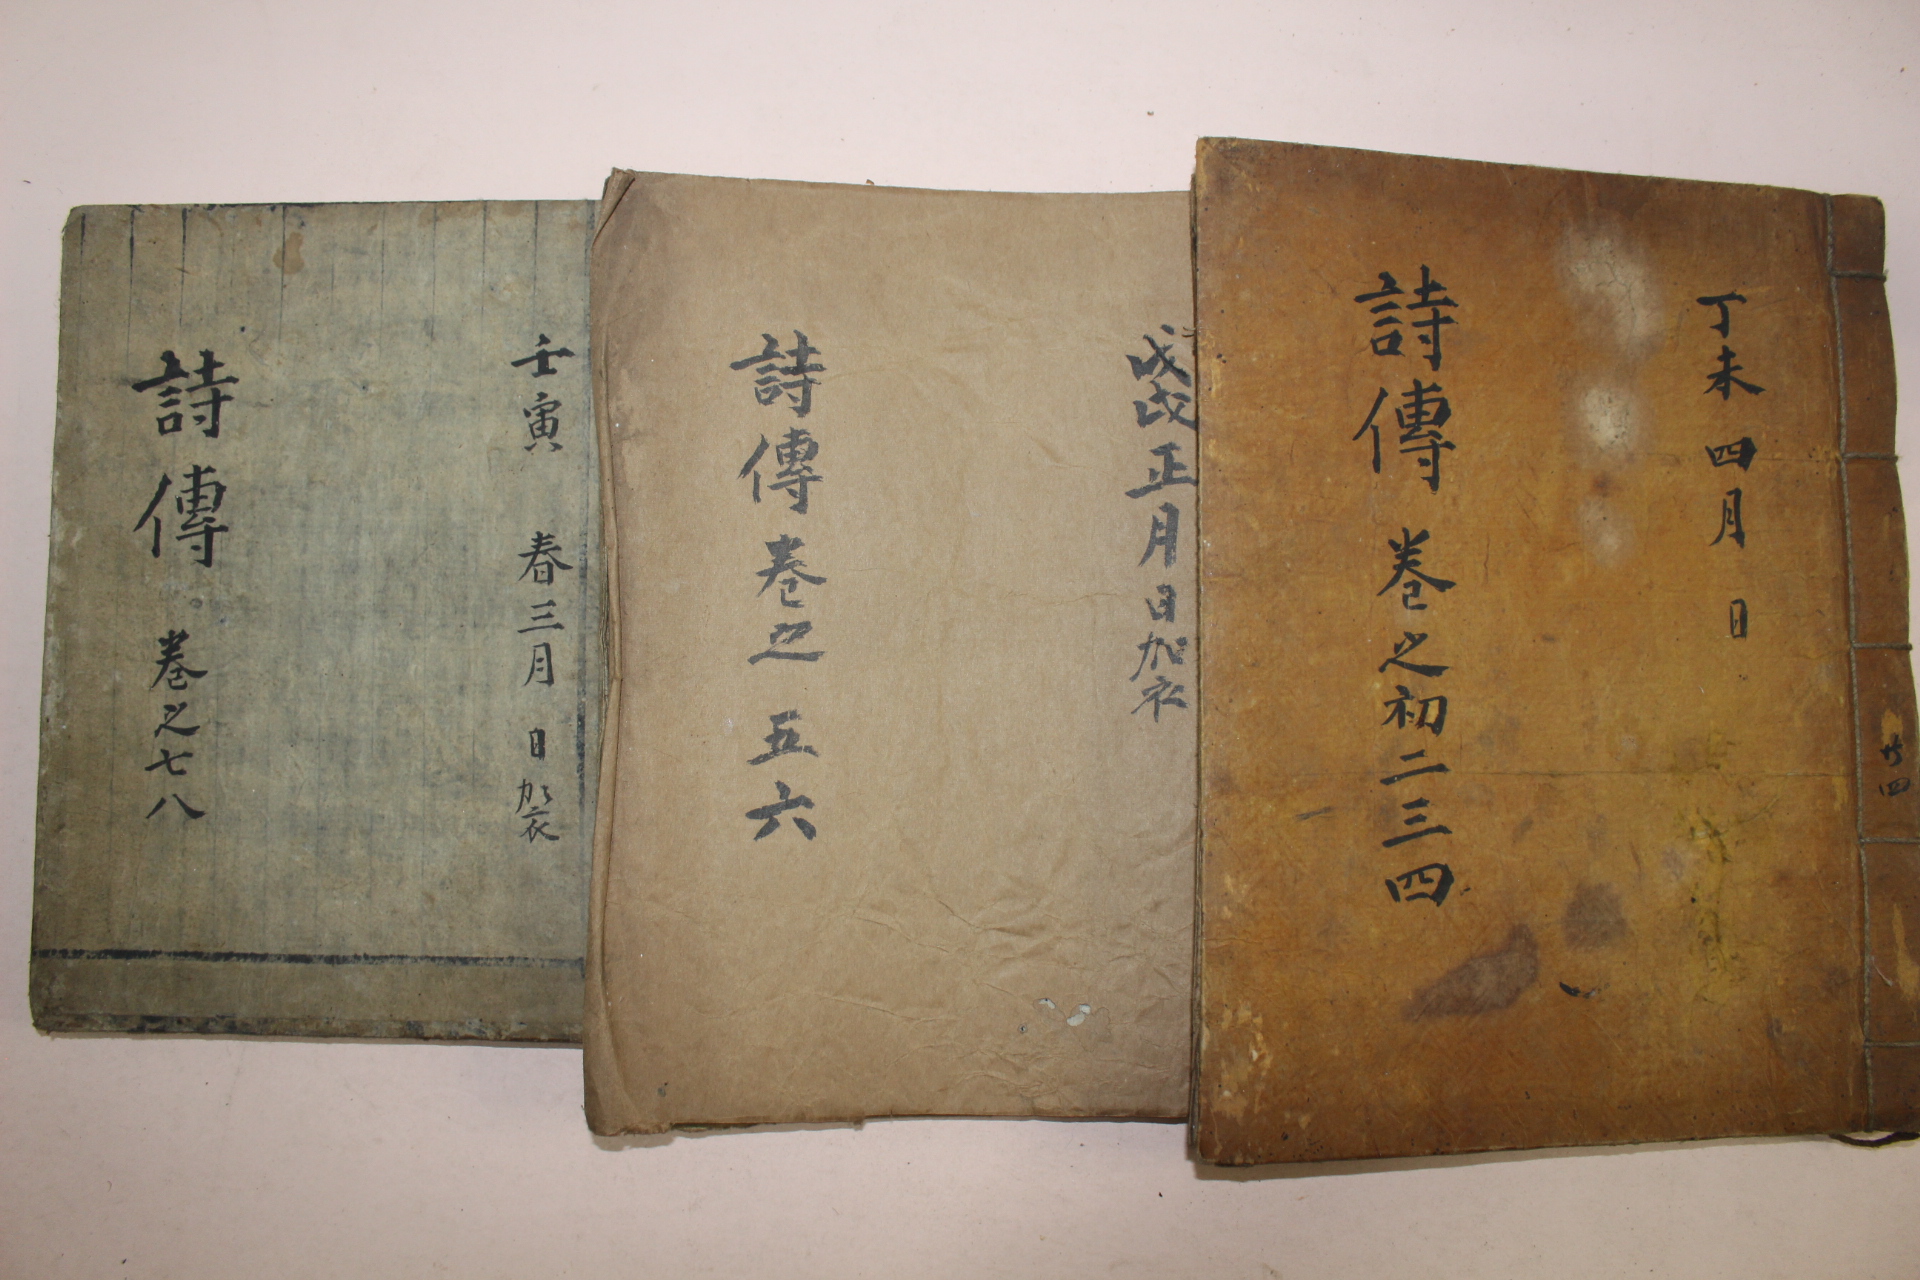 丁未 四月 日
詩傳 卷之初二三四
戊戌正月日加衣
詩傳卷之 五六
壬寅 春三月 日 袈
詩傳 卷之七八